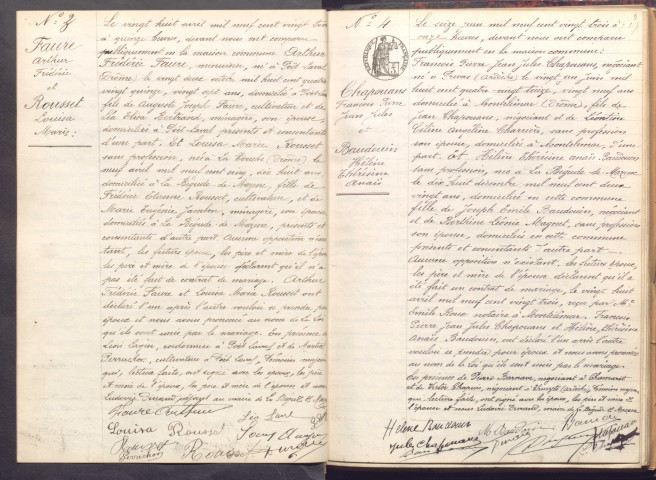 N° 3
Faure
Arthur
Frédéric
et
Rousset
Louisa
Marie :
Le vingt huit avril mil neuf cent vingt trois
à quinze heures, devant nous ont comparu
publiquement en la maison commune Arthur
Frédéric Faure, menuisier, né à Poët Laval
(Drôme) le vingt deux octobre mil huit cent quatre
vingt quinze, vingt sept ans, domicilié à Poët Laval
fils de Auguste Joseph Faure, cultivateur et de
Bertrand, ménagère, son épouse,
domiciliés à Poët Laval présents et consentants
d'une part. Et Louisa Marie Rousset
sans profession, née à La Touche (Drôme) le
neuf avril mil neuf cent cinq, dix huit ans
domiciliée à la Bégude de Mazenc, fille de
Frédéric Etienne Rousset, cultivateur, et de
Marie Eugénie ménagère, son épouse
domiciliés à la Bégude de Mazenc, présents et
consentants d'autre part. Aucune opposition n'exis
tant, les futurs époux, les père et mère de l'époux
les père et mère de l'épouse déclarent qu'il n'a
pas été fait de contrat de mariage. Arthur
Frédéric Faure et Louisa Marie Rousset ont
déclaré l'un après l'autre vouloir se prendre pour
époux et nous avons prononcé au nom de la Loi
qu'ils sont unis par le mariage. En présence de
Léon cordonnier à Poët Laval et de
cultivateur à Poët Laval, témoins majeurs
qui, lecture faite, ont signé avec les époux, les père
et mère de l'époux, les père et mère de l'épouse et nous
Ludovic Durand, maire de la Bégude de Mazenc
Faure Arthur
Louisa Rousset
Rousset
N° 4
Chapouans
François Pierre
Jean Jules
et
Baudouin
Hélène
Thérésine
Anaïs
Le seize juin mil neuf cent vingt trois à
onze heures, devant nous ont comparu
publiquement en la maison commune :
François Pierre Jean Jules Chapouans, négociant
né à Privas (Ardèche) le vingt un juin mil
huit cent quatre vingt treize, vingt neuf ans
domicilié à Montélimar (Drôme), fils de
Jean Chapouans, négociant et de Léontine
Céline Caroline Charrière, sans profession
son épouse, domiciliés à Montélimar, d'une
part. Et Hélène Thérésine Anaïs Baudouin
sans profession, née à La Bégude de Mazenc
le dix huit décembre mil neuf cent deux
vingt ans, domiciliée en cette commune
fille de Joseph Emile Baudouin, négociant
et de Berthine Léonie Magnet, sans profession
son épouse, domiciliés en cette commune
présents et consentants d'autre part.
Aucune opposition n'existant, les futurs époux,
les père et mère de l'épouse déclarent qu'il a
été fait un contrat de mariage, le vingt huit
avril mil neuf cent vingt trois, reçu par Me
Emile Roux notaire à Montélimar. François
Pierre Jean Jules Chapouans et Hélène, Thérésine
Anaïs Baudouin, ont déclaré l'un après l'autre
vouloir se prendre pour époux et nous avons prononcé
au nom de la Loi qu'ils sont unis par le mariage.
En présence de Pierre négociant à Chomérac
et de Victor négociant à (Ardèche), témoins majeurs,
qui, lecture faite, ont signé avec les époux, les père et mère
de l'épouse et nous Ludovic Durand, maire de la Bégude de Mazenc
Hélène Baudouin
Jules Chapouans